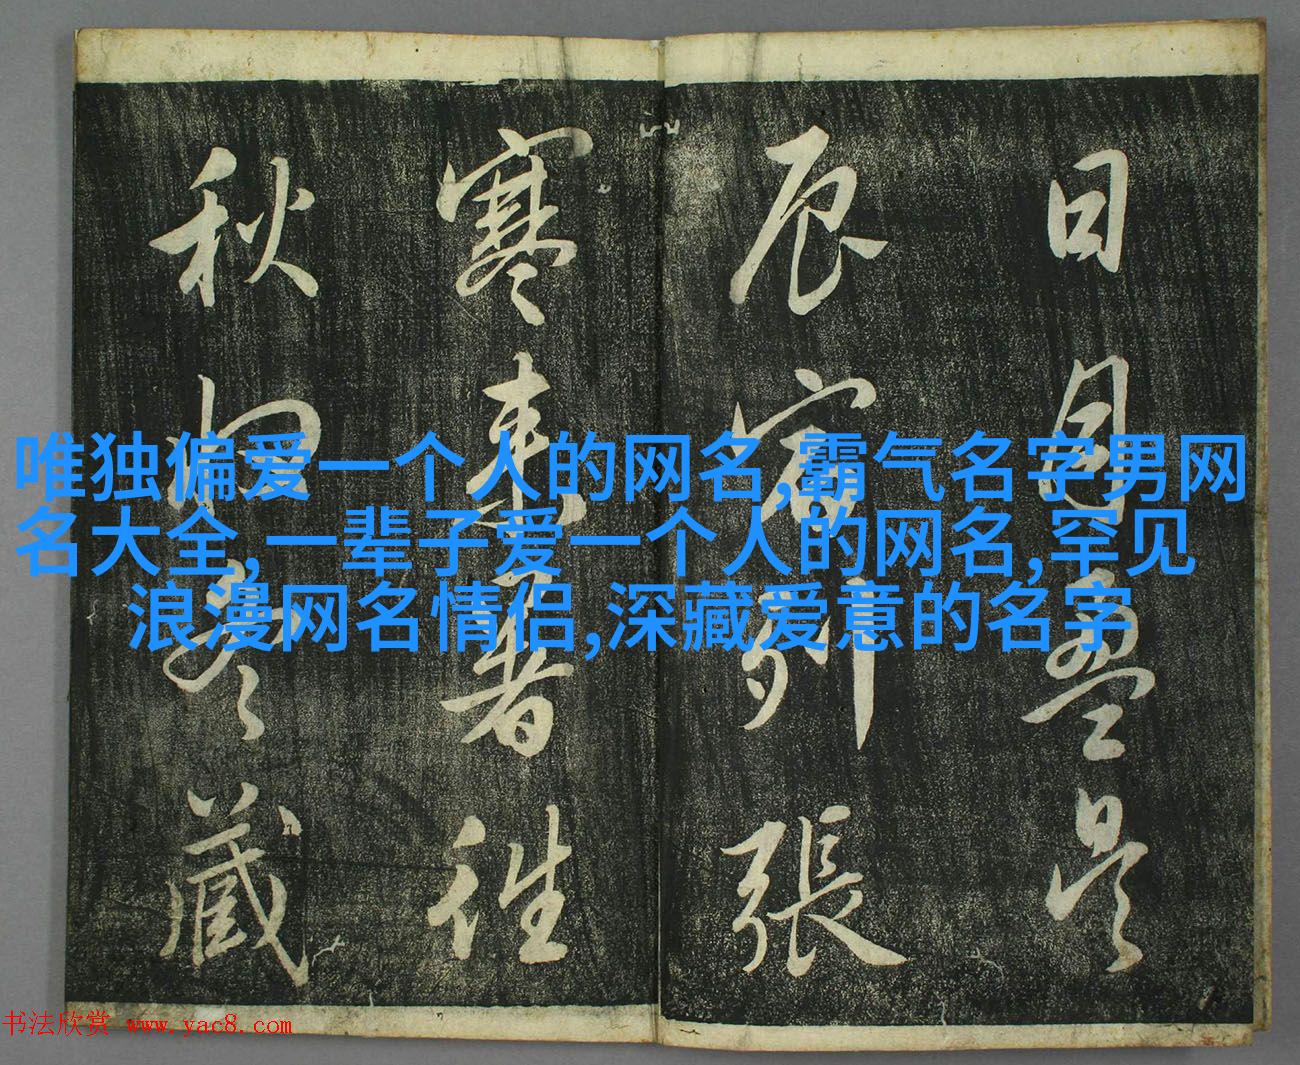 日月盈昃
辰宿列張
寒来暑往
秋收冬藏
唯独偏爱一个人的网名,霸气名字男网
名大全,一辈子爱一个人的网名,罕见
浪漫网名情侣,深藏爱意的名字
书法欣赏 www.yac8.com